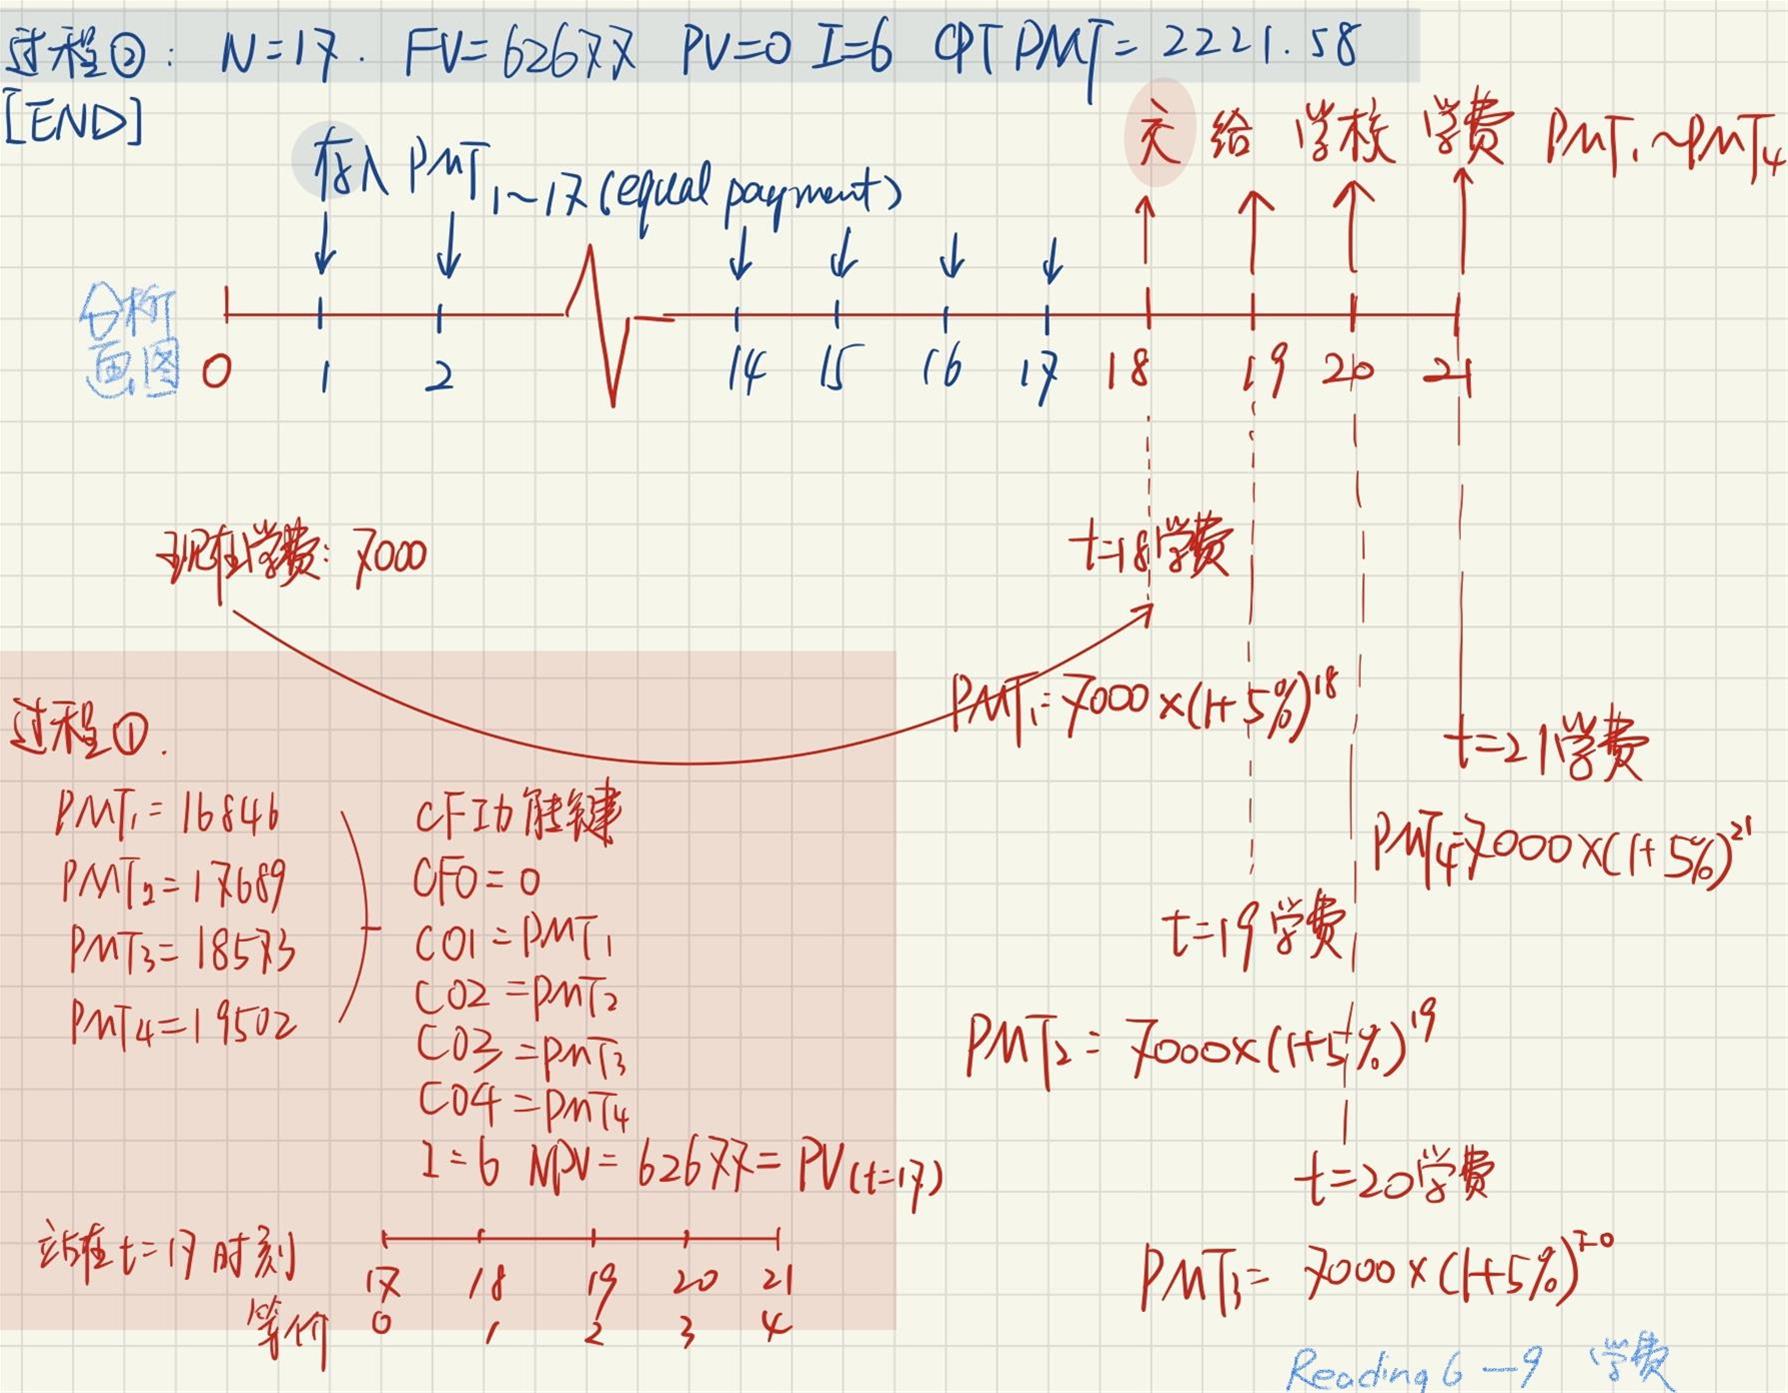 过程②: N=17. FV=62677 PV=0 I=6 CPT PMT=2221.58
[END]
存入 PMT1~17 (equal payment)
交给学校学费 PMT1~PMT4
分析
画图
0 1 2 14 15 16 17 18 19 20 21
现在学费: 7000
t=18学费
PMT1=7000×(1+5%)^18
t=21学费
PMT4=7000×(1+5%)^21
t=19学费
PMT2=7000×(1+5%)^19
t=20学费
PMT3=7000×(1+5%)^20
过程①.
PMT1=16846
PMT2=17689
PMT3=18573
PMT4=19502
CF功能键
CF0=0
C01=PMT1
C02=PMT2
C03=PMT3
C04=PMT4
I=6 NPV=62677=PV(t=17)
站在t=17时刻
17 18 19 20 21
等价 0 1 2 3 4
Reading 6-9 学费